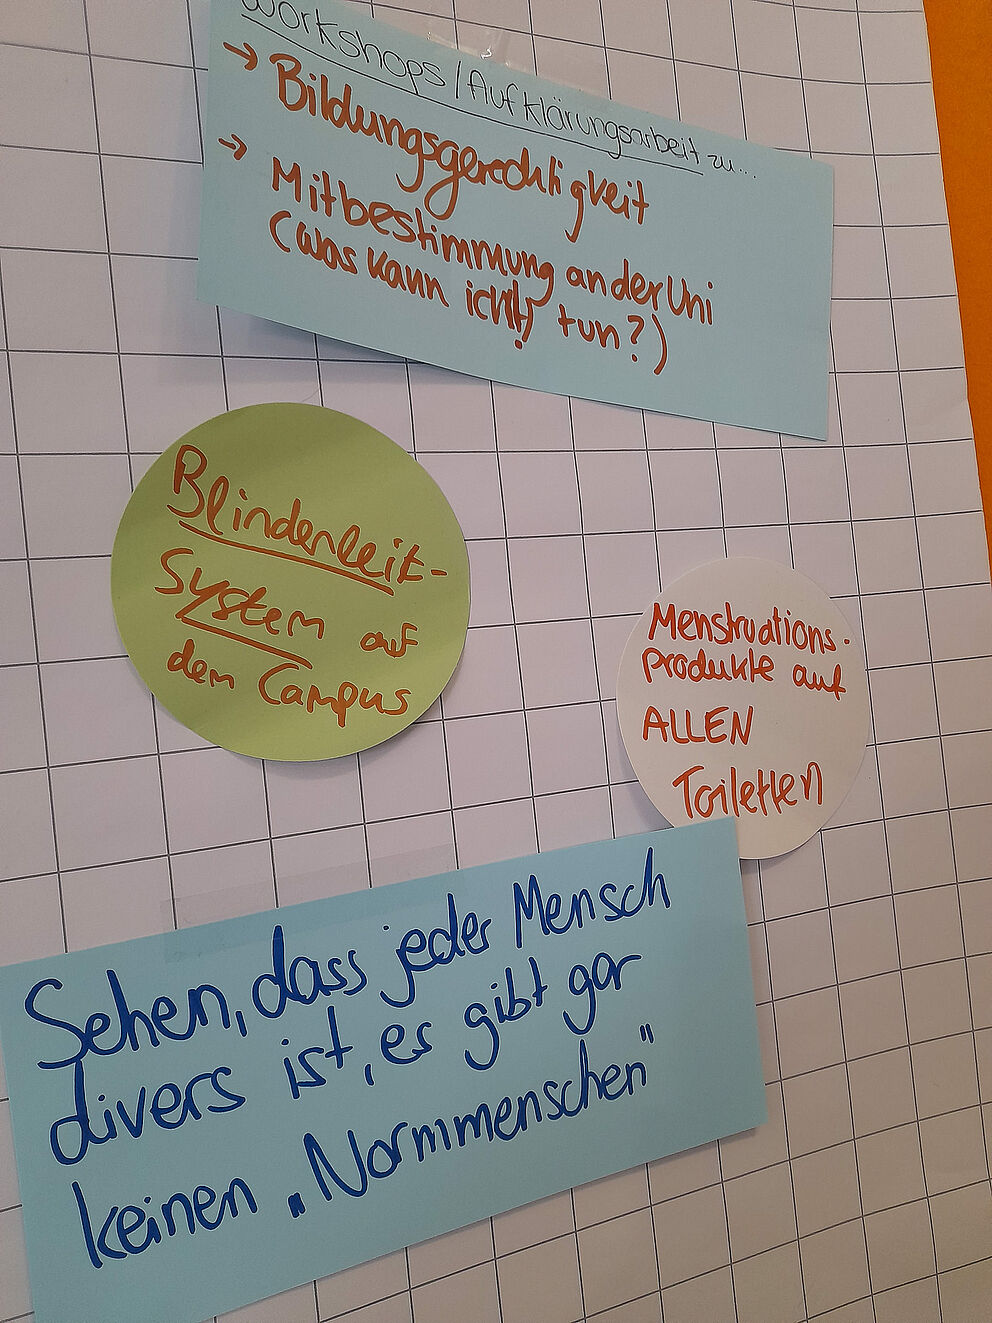 Workshops / Aufklärungsarbeit zu...
→ Bildungsgerechtigkeit
→ Mitbestimmung an der Uni
(was kann ich(!) tun?)
Blindenleit-
System auf
dem Campus
Menstruations-
produkte auf
ALLEN
Toiletten
Sehen, dass jeder Mensch
divers ist, es gibt gar
keinen „Normmenschen"